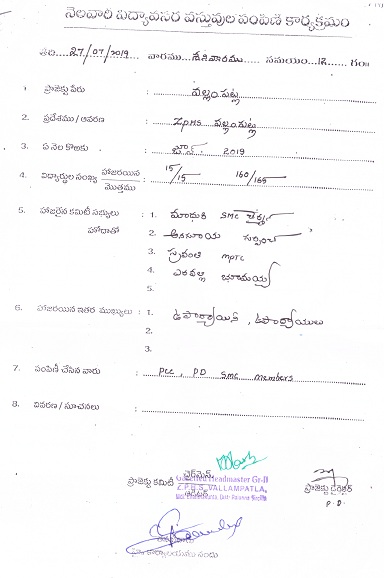 నెలవారి విద్యావసర వస్తువుల పంపిణి కార్యక్రమం
తేది 27/07/2019 వారము శనివారము సమయం 12 గం॥
1 ప్రాజెక్టు పేరు : వల్లంపట్ల
2. ప్రదేశము / ఆవరణ : ZPHS వల్లంపట్ల
3. ఏ నెల కొఱకు : జూన్ - 2019
4. విద్యార్థుల సంఖ్య హాజరయిన / మొత్తము : 15/15 160/165
5. హాజరైన కమిటీ సభ్యులు : 1. మాధురి SMC చైర్మన్
హోదాతో 2. అనసూయ సర్పంచ్
3. స్రవంతి MPTC
4. భూమయ్య
5.
6. హాజరయిన ఇతర ముఖ్యులు : 1. ఉపాధ్యాయిని, ఉపాధ్యాయులు
2.
3.
7. పంపిణీ చేసిన వారు : PCC, PD SMC members
8. వివరణ / సూచనలు :
ప్రాజెక్టు కమిటీ ఛైర్మెన్
Gazetted Headmaster Gr-II
Z.P.H.S. VALLAMPATLA,
ప్రాజెక్టు డైరెక్టర్
P.D.